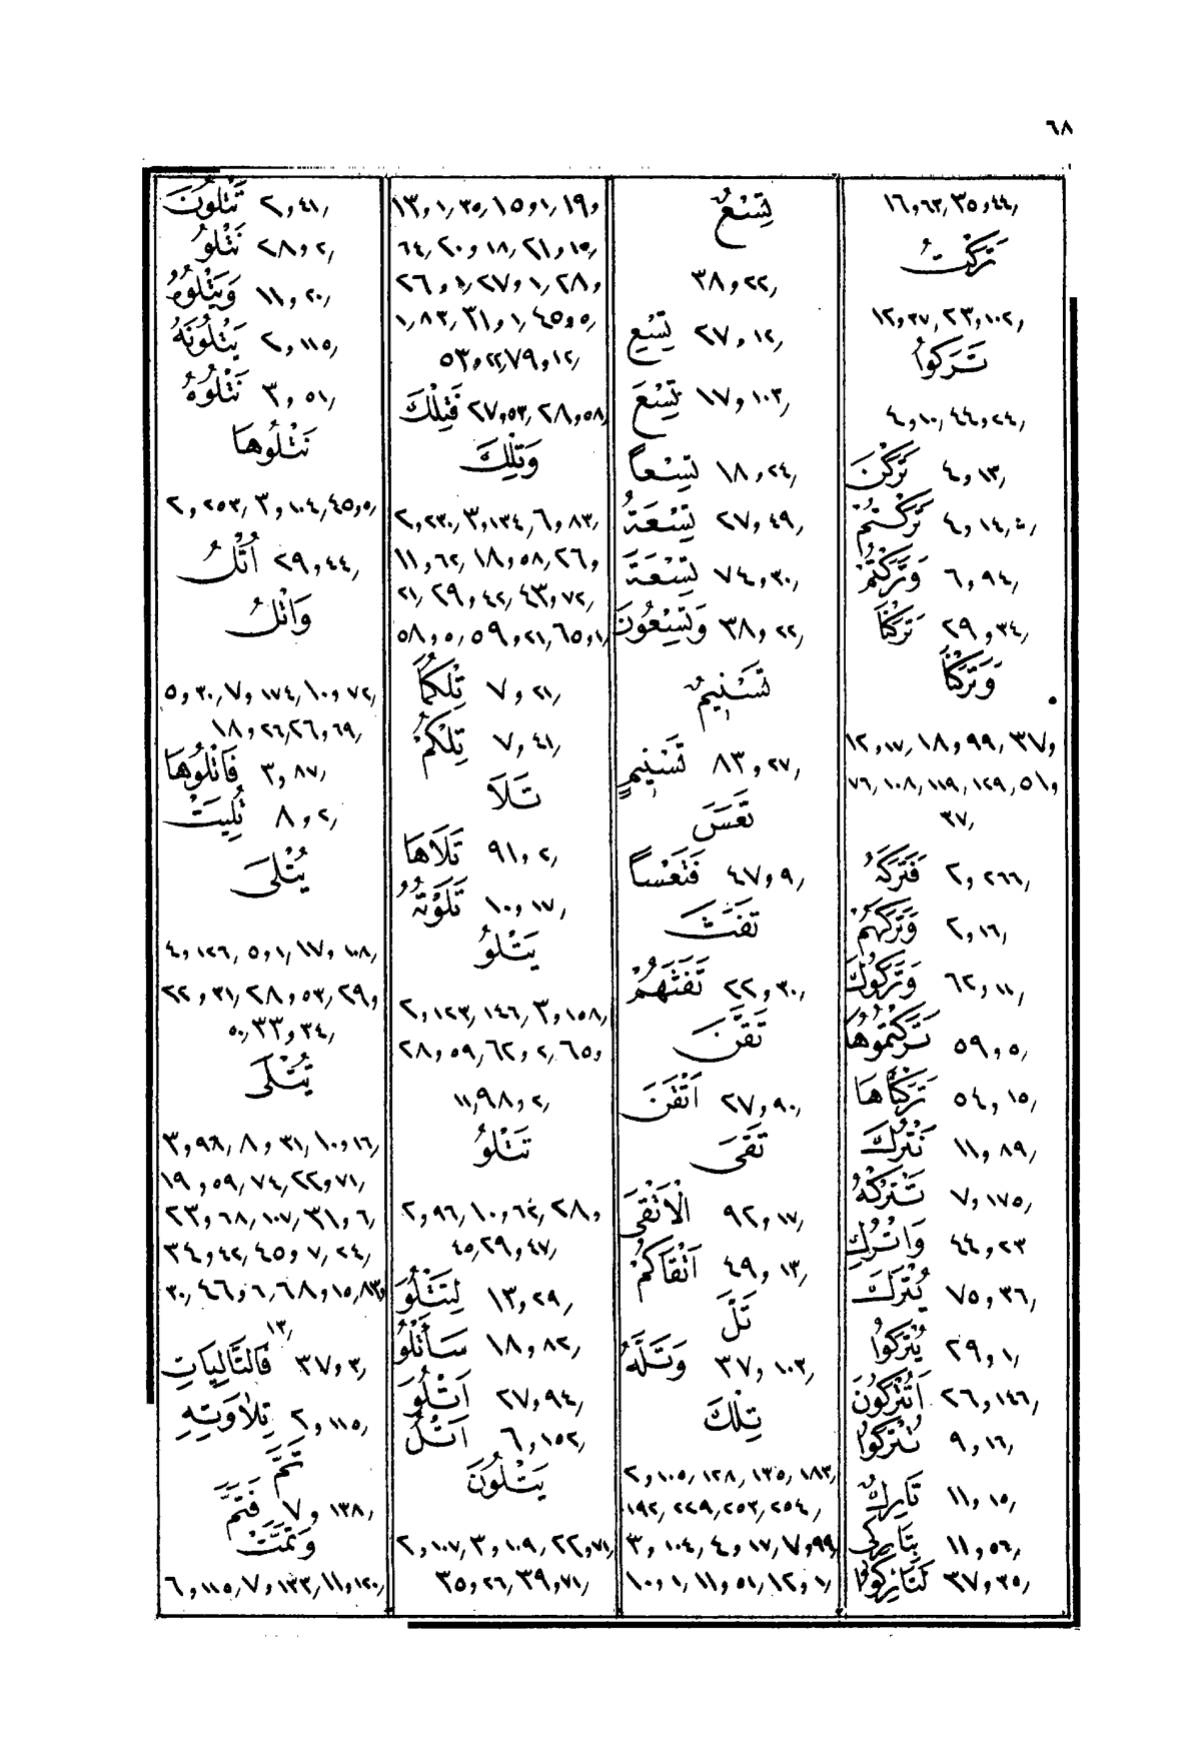 ٦٨
١٦و٦٣, ٣٥و٤٤,
تَرَكْتُ
١٢و٣٧, ٢٣و١٠٢,
تَرَكُوا
٤و١٠, ٤٤و٢٤,
تَرَكْنَ ٤و١٣,
تَرَكْتُمْ ٤و١٤,
وَتَرَكْتُمْ ٦و٩٤,
تَرَكْنَا ٢٩و٣٤,
وَتَرَكْنَا
١٢و١٧, ١٨و٩٩, ٣٧و
٧٦, ١٠٨, ١١٩, ١٢٩, ٥١و
٣٧,
فَتَرَكَهُ ٢و٢٦٦,
وَتَرَكَهُمْ ٢و١٦,
وَتَرَكُوكَ ٦٢و١١,
تَرَكْتُمُوهَا ٥٩و٥,
تَرَكْنَاهَا ٥٤و١٥,
نَتْرُكَ ١١و٨٩,
تَتْرُكْهُ ٧و١٧٥,
وَاتْرُكِ ٤٤و٢٣
يُتْرَكَ ٧٥و٣٦,
يُتْرَكُوا ٢٩و١,
أَتُتْرَكُونَ ٢٦و١٤٦,
تُتْرَكُوا ٩و١٦,
تَارِكٌ ١١و١٥,
بِتَارِكِى ١١و٥٤,
لَتَارِكُوا ٣٧و٣٥,
تِسْعٌ
٣٨و٢٢,
تِسْعِ ٢٧و١٢,
تِسْعَ ١٧و١٠٣,
تِسْعاً ١٨و٢٤,
تِسْعَةُ ٢٧و٤٩,
تِسْعَةَ ٧٤و٣٠,
وَتِسْعُونَ ٣٨و٢٢,
تَسْنِيمٌ
تَسْنِيمٍ ٨٣و٢٧,
تَعَسَ
فَتَعْساً ٤٧و٩,
تَفَثَ
تَفَثَهُمْ ٢٢و٣٠,
تَقَنَ
اَتْقَنَ ٢٧و٩٠,
تَقَى
الْاَتْقَى ٩٢و١٧,
اَتْقَاكُمْ ٤٩و١٣,
تَلَّ
وَتَلَّهُ ٣٧و١٠٣,
تِلْكَ
٢و١٠٥, ١٢٨, ١٣٥, ١٨٣,
١٩٢, ٢٢٩, ٢٥٣, ٢٥٤,
٣و١٠٤, ٤و١٧, ٧و٩٩,
١٠و١, ١١و٥١, ١٢و١,
١٣و١, ٣٥, ١٥و١, ١٩و
٦٤, ٢٠و١٨, ٢١و١٥,
٢٦و١, ٢٧و١, ٢٨و
١,٨٣, ٣١و١, ٤٥و٥,
٥٣و٢٢, ٧٩و١٢,
فَتِلْكَ ٢٧و٥٣, ٢٨و٥٨,
وَتِلْكَ
٢و٢٣٠, ٣و١٣٤, ٦و٨٣,
١١و٦٢, ١٨و٥٨, ٢٦و
٢١, ٢٩و٤٢, ٤٣و٧٢,
٥٨و٥, ٥٩و٢١, ٦٥و١,
تِلْكُمَا ٧و٢١,
تِلْكُمْ ٧و٤١,
تَلَا
تَلَاهَا ٩١و٢,
تَلَوْتُهُ ١٠و١٧,
يَتْلُو
٢و١٢٣, ١٤٦, ٣و١٥٨,
٢٨و٥٩, ٦٢و٢, ٦٥و
١١, ٩٨و٢,
تَتْلُو
٢و٩٦, ١٠و٦٢, ٢٨و
٤٥, ٢٩و٤٧,
لِتَتْلُوَ ١٣و٢٩,
سَأَتْلُو ١٨و٨٢,
اَتْلُوَ ٢٧و٩٤,
اَتْلُ ٦و١٥٢,
يَتْلُونَ
٢و١٠٧, ٣و١٠٩, ٢٢و٧١,
٣٥و٢٦, ٣٩و٧١,
تَتْلُونَ ٢و٤١,
نَتْلُو ٢٨و٢,
وَيَتْلُوهُ ١١و٢٠,
يَتْلُونَهُ ٢و١١٥,
نَتْلُوهُ ٣و٥١,
نَتْلُوهَا
٢و٢٥٣, ٣و١٠٤, ٤٥و٥,
اُتْلُ ٢٩و٤٤,
وَاتْلُ
٥و٣٠, ٧و١٧٤, ١٠و٧٢,
١٨و٢٦, ٢٦و٦٩,
فَاتْلُوهَا ٣و٨٧,
تُلِيَتْ ٨و٢,
يُتْلَى
٤و١٢٦, ٥و١, ١٧و١٠٨,
٢٢و٣١, ٢٨و٥٣, ٢٩و
٥٠, ٣٣و٣٤,
تُتْلَى
٣و٩٨, ٨و٣١, ١٠و١٦,
١٩و٥٩, ٧٤, ٢٢و٧١,
٢٣و٦٨, ١٠٧, ٣١و٦,
٣٤و٤٢, ٤٥و٧, ٢٤,
٣٠, ٤٦و٦, ٦٨و١٥, ٨٣و
١٣,
فَالتَّالِيَاتِ ٣٧و٣,
تِلَاوَتِهِ ٢و١١٥,
تَمَّ
فَتَمَّ ٧و١٣٨,
وَتَمَّتْ
٦و١١٥, ٧و١٣٣, ١١و١٢٠,